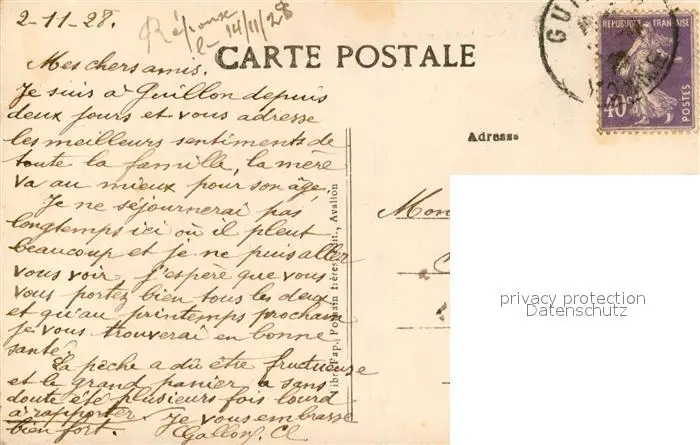 2-11-28.
Réponse
le 14/11/28
CARTE POSTALE
Mes chers amis.
Je suis à Guillon depuis
deux jours et vous adresse
les meilleurs sentiments de
toute la famille, la mère
va au mieux pour son âge,
Je ne séjournerai pas
longtemps ici où il pleut
beaucoup et je ne puis aller
vous voir. j'espère que vous
vous portez bien tous les deux
et qu'au printemps prochain
je vous trouverai en bonne
santé.
La pêche a dû être fructueuse
et le grand panier a sans
doute été plusieurs fois lourd
à rapporter. Je vous embrasse
bien fort.
Adresse
Mon
REPUBLIQUE FRANÇAISE
40c
POSTES
GUI
Avallon
privacy protection
Datenschutz